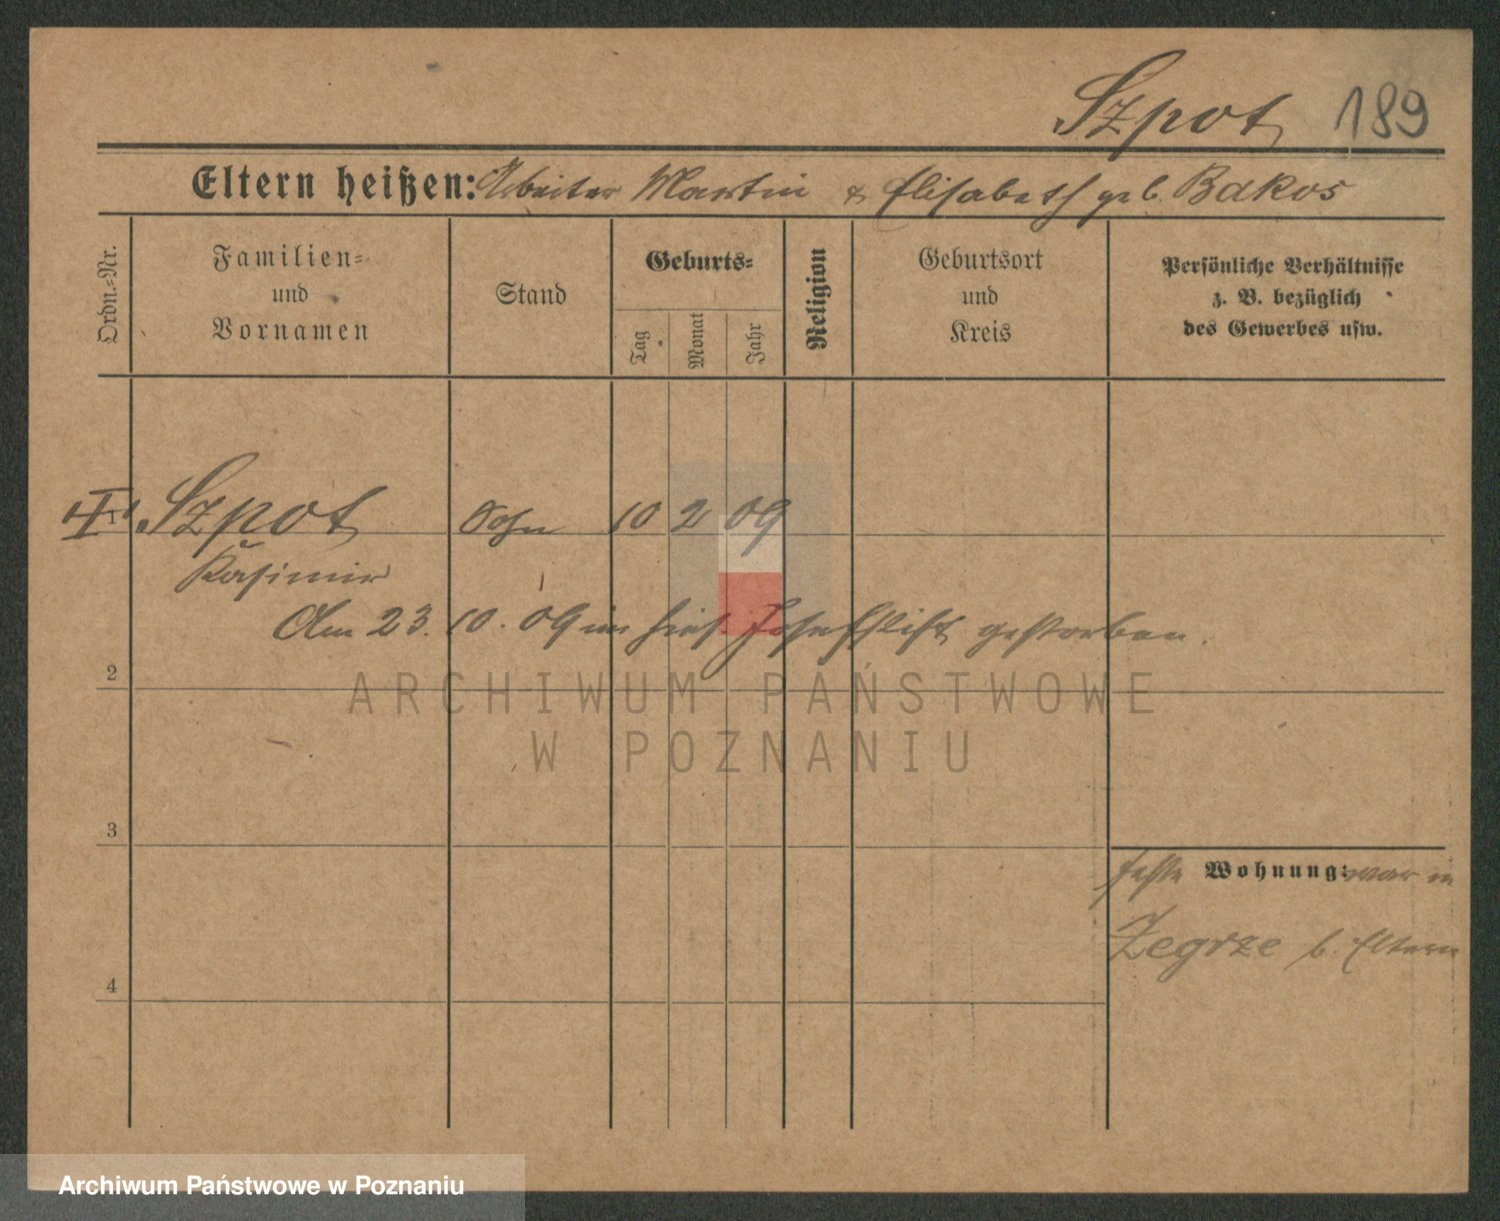 Szpot 189
Eltern heißen: Arbeiter Martin & Elisabeth geb. Bakos
Ordn.=Nr.
Familien=
und
Vornamen
Stand
Geburts=
Tag
Monat
Jahr
Religion
Geburtsort
und
Kreis
Persönliche Verhältnisse
z. B. bezüglich
des Gewerbes usw.
1 Szpot Sohn 10 2 09
Kasimir
Am 23. 10. 09 im hies. Josefstift gestorben.
2
ARCHIWUM PAŃSTWOWE
W POZNANIU
3
feste Wohnung: war in
Zegrze b. Eltern
4
Archiwum Państwowe w Poznaniu